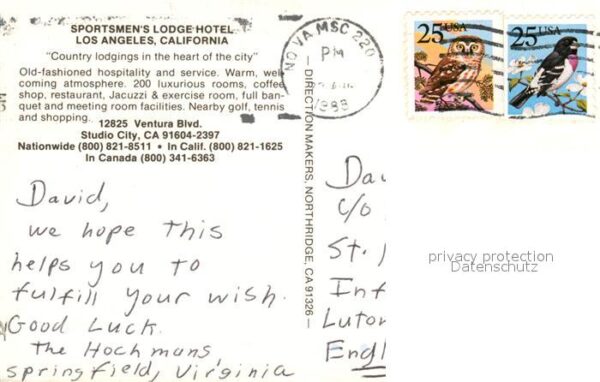 SPORTSMEN'S LODGE HOTEL
LOS ANGELES, CALIFORNIA
"Country lodgings in the heart of the city"
Old-fashioned hospitality and service. Warm, wel-
coming atmosphere. 200 luxurious rooms, coffee
shop, restaurant, Jacuzzi & exercise room, full ban-
quet and meeting room facilities. Nearby golf, tennis
and shopping.
12825 Ventura Blvd.
Studio City, CA 91604-2397
Nationwide (800) 821-8511 • In Calif. (800) 821-1625
In Canada (800) 341-6363
David,
we hope this
helps you to
fulfill your wish.
Good Luck.
The Hochmans,
Springfield, Virginia
— DIRECTION MAKERS, NORTHRIDGE, CA 91326 —
NO VA MSC 220
PM
25 USA
25 USA
Dav
c/o
St.
Inf
Luton
Engl
privacy protection
Datenschutz